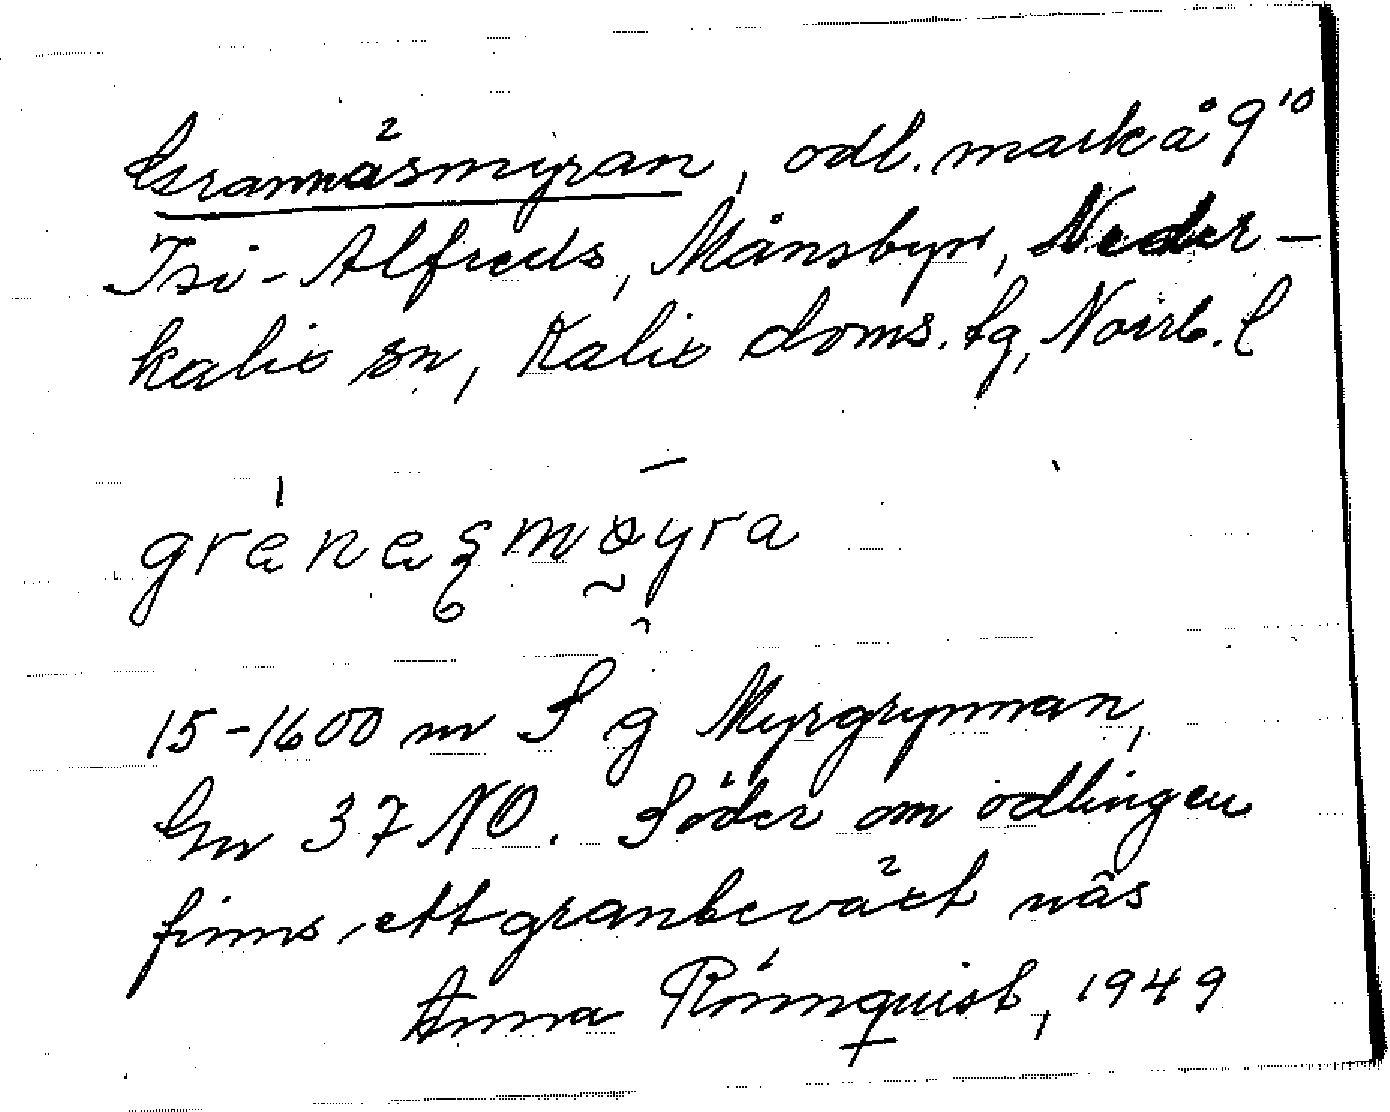 Grannäsmyran, odl. mark å 9¹⁰
Isi-Alfreds, Månsbyn, Neder-
kalix sn, Kalix doms. tg, Norrb. l
granasmøyra
15-1600 m S g Myrgrynnan,
Gn 37 NO. Söder om odlingen
finns ett granbeväxt näs
Anna Rönnquist, 1949